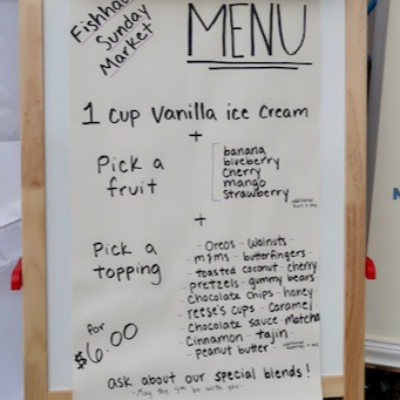 Fishhawk
Sunday
Market
MENU
1 cup Vanilla ice cream
+
Pick a
fruit
banana
blueberry
cherry
mango
Strawberry
+
Pick a
topping
- Oreos - Walnuts -
- m&ms - butterfingers -
- toasted coconut - cherry
- pretzels - gummy bears
- chocolate chips - honey -
- reese's cups - caramel
- Chocolate sauce - matcha
- Cinnamon - tajin -
- peanut butter -
for
$6.00
ask about our special blends!
- May the 4th be with you -